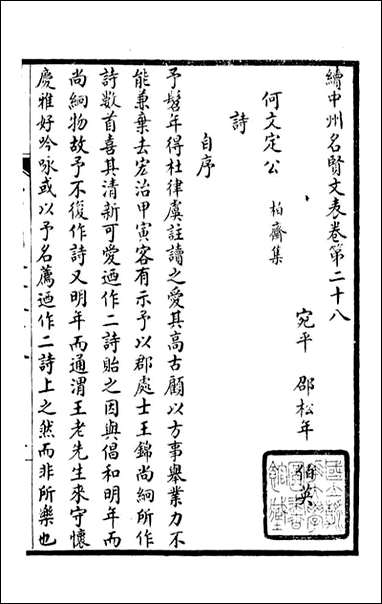 續中州名賢文表卷第二十八
宛平 邵松年 伯英
何文定公 柏齋集
詩
自序
予髫年得杜律虞註讀之愛其高古顧以方事舉業力不
能兼棄去宏治甲寅客有示予以郡處士王錦尚絅所作
詩數首喜其清新可愛迺作二詩貽之因與倡和明年而
尚絅物故予不復作詩又明年而通渭王老先生來守懷
慶雅好吟咏或以予名薦迺作二詩上之然而非所樂也